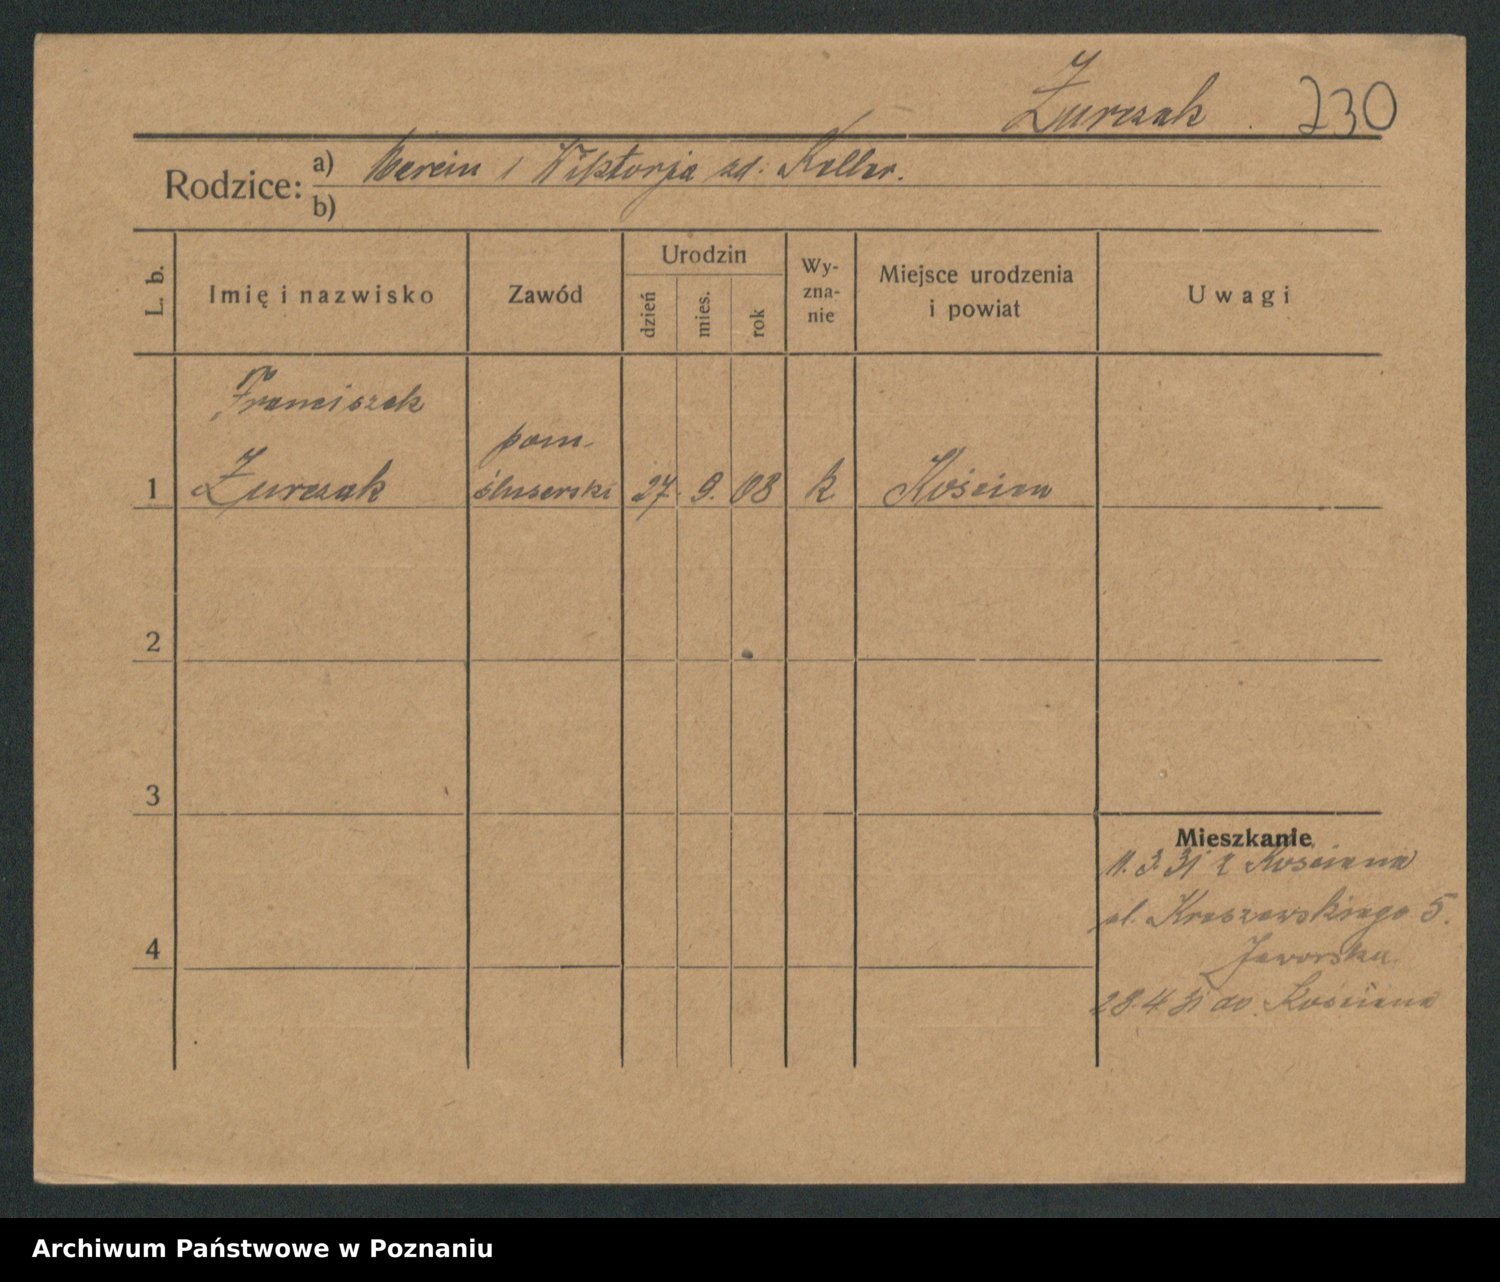 Żurczak 230
Rodzice: a) Marcin i Wiktorja zd. Keller.
b)
L. b.
Imię i nazwisko
Zawód
Urodzin
dzień
mies.
rok
Wy-
zna-
nie
Miejsce urodzenia
i powiat
Uwagi
Franciszek
pom.
1 Żurczak ślusarski 27. 9. 08 k Kościan
2
3
4
Mieszkanie
11.3.31 z Kościana
ul. Kraszewskiego 5.
Jaworska
28.4 31 do Kościana
Archiwum Państwowe w Poznaniu